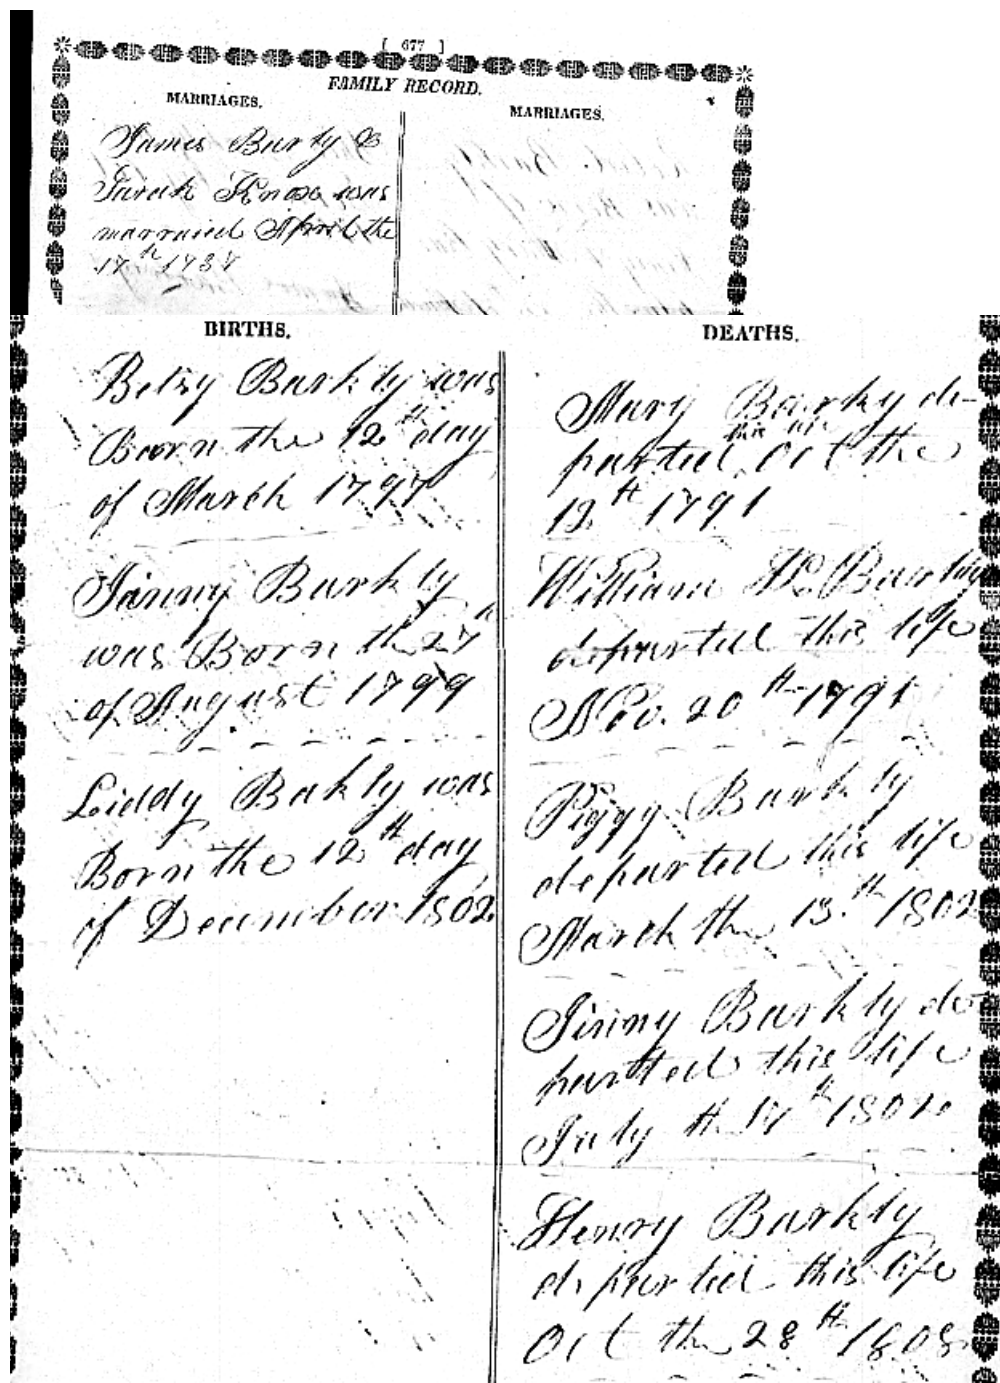 [ 677 ]
FAMILY RECORD.
MARRIAGES.
James Barkly &
Sarah Knox was
marraied April the
17th 1787
MARRIAGES.
BIRTHS.
Betsy Barkly was
Boorn the 12th day
of March 1797
Jinny Barkly
was Born th 27th
of August 1799
Liddy Bakly was
Born the 12th day
of December 1802
DEATHS.
Mary Barkly de-
parted this life Oct the
12th 1791
William H. Barkly
departed this life
Nov. 20th 1791
Piggy Barkly
departed this life
March the 13th 1802
Jinny Barkly de-
parted this life
July th 17th 1802
Henry Barkly
departed this life
Oct the 28th 1808